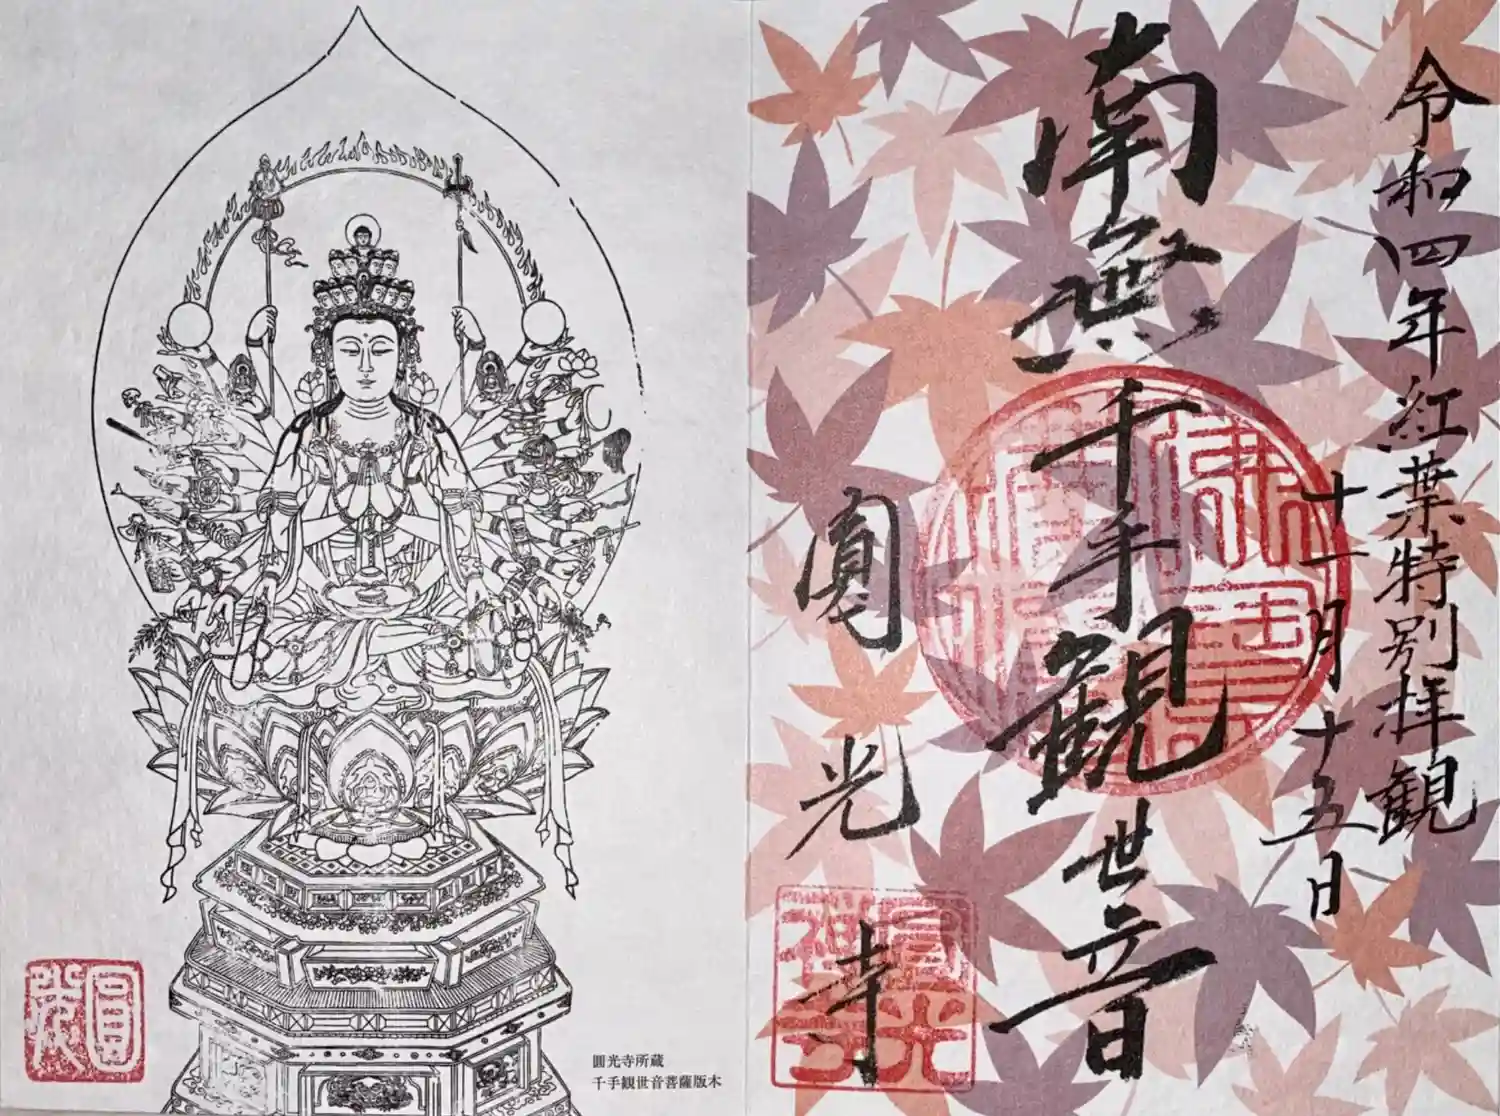 令和四年紅葉特別拝観
十一月十五日
南無千手観世音
圓光寺
圓光寺所蔵
千手観世音菩薩版木
圓光